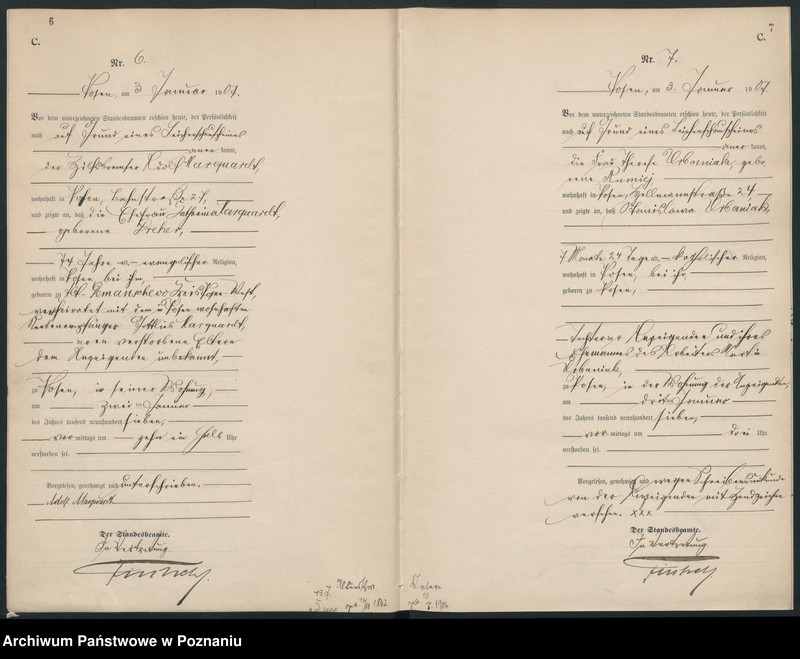 6
C.
Nr. 6.
Posen, am 3 Januar 1907.
Vor dem unterzeichneten Standesbeamten erschien heute, der Persönlichkeit
nach auf Grund eines Leichenschauscheines
aner kannt,
der Hilfsbremser Adolf Marquardt,
wohnhaft in Posen, 27,
und zeigte an, daß die Ehefrau Marquardt,
geborene Dreher,
74 Jahre alt, evangelischer Religion,
wohnhaft in Posen, bei ihm,
geboren zu Kreis Posen-West,
verheiratet mit dem in Posen wohnhaften
Rentenempfänger Gottlieb Marquardt,
deren verstorbene Eltern
dem Anzeigenden unbekannt,
zu Posen, in seiner Wohnung,
am zwei ten Januar
des Jahres tausend neunhundert sieben,
vor mittags um zehn ein halb Uhr
verstorben sei.
Vorgelesen, genehmigt und unterschrieben.
Adolf Marquardt
Der Standesbeamte.
In Vertretung.
7
C.
Nr. 7.
Posen, am 3. Januar 1907
Vor dem unterzeichneten Standesbeamten erschien heute, der Persönlichkeit
nach auf Grund eines Leichenschauscheines
aner kannt,
die Frau Therese Urbaniak, gebo
rene
wohnhaft in Posen, 24
und zeigte an, daß Stanislawa Urbaniak,
7 Monate 24 Tage alt, katholischer Religion,
wohnhaft in Posen, bei ihr,
geboren zu Posen,
Tochter der Anzeigenden und ihres
Ehemannes des Arbeiters Martin
Urbaniak,
zu Posen, in der Wohnung der Anzeigenden,
am dritten Januar
des Jahres tausend neunhundert sieben,
vor mittags um drei Uhr
verstorben sei.
Vorgelesen, genehmigt und wegen Schreibensunkunde
von der Anzeigenden mit Handzeichen
versehen. xxx
Der Standesbeamte.
In Vertretung.
Archiwum Państwowe w Poznaniu